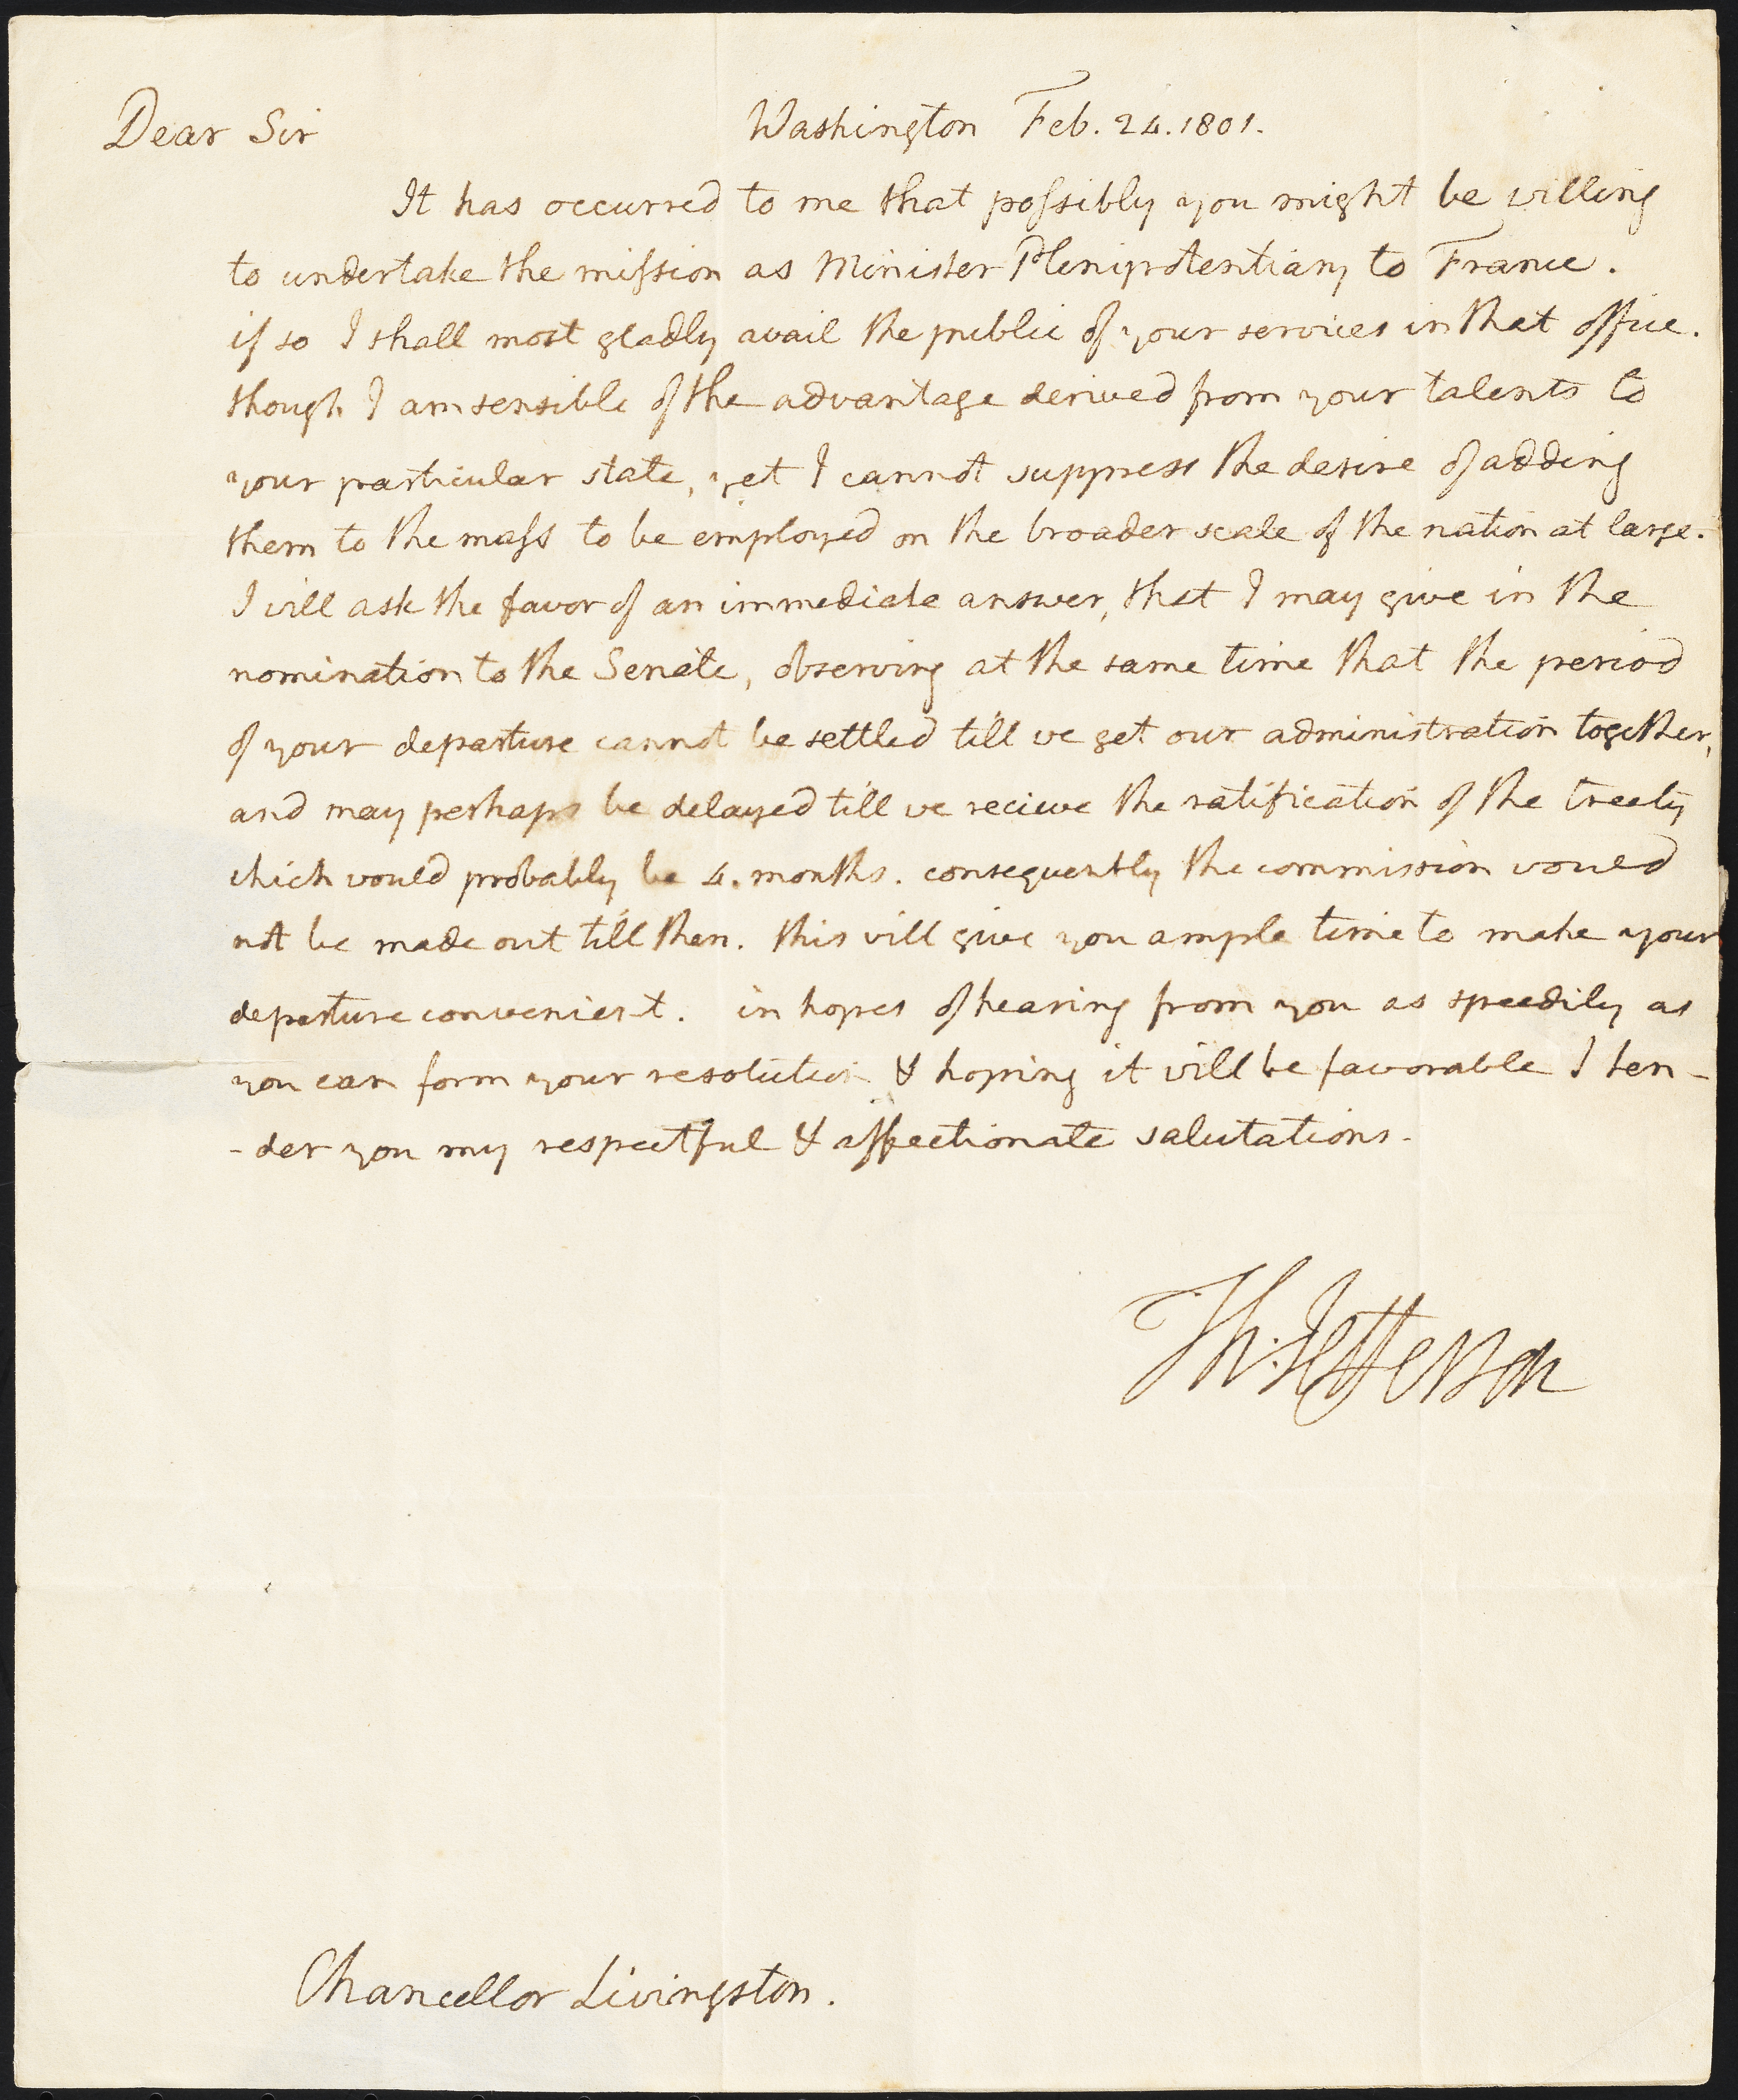 Dear Sir Washington Feb. 24. 1801.
It has occurred to me that poſsibly you might be willing
to undertake the miſsion as Minister Plenipotentiary to France.
if so I shall most gladly avail the public of your services in that office.
though I am sensible of the advantage derived from your talents to
your particular state, yet I cannot suppress the desire of adding
them to the maſs to be employed on the broader scale of the nation at large.
I will ask the favor of an immediate answer, that I may give in the
nomination to the Senate, observing at the same time that the period
of your departure cannot be settled till we get our administration together,
and may perhaps be delayed till we recieve the ratification of the treaty
which would probably be 4. months. consequently the commission would
not be made out till then. this will give you ample time to make your
departure convenient. in hopes of hearing from you as speedily as
you can form your resolution & hoping it will be favorable I ten-
-der you my respectful & affectionate salutations.
Th: Jefferson
Chancellor Livingston.